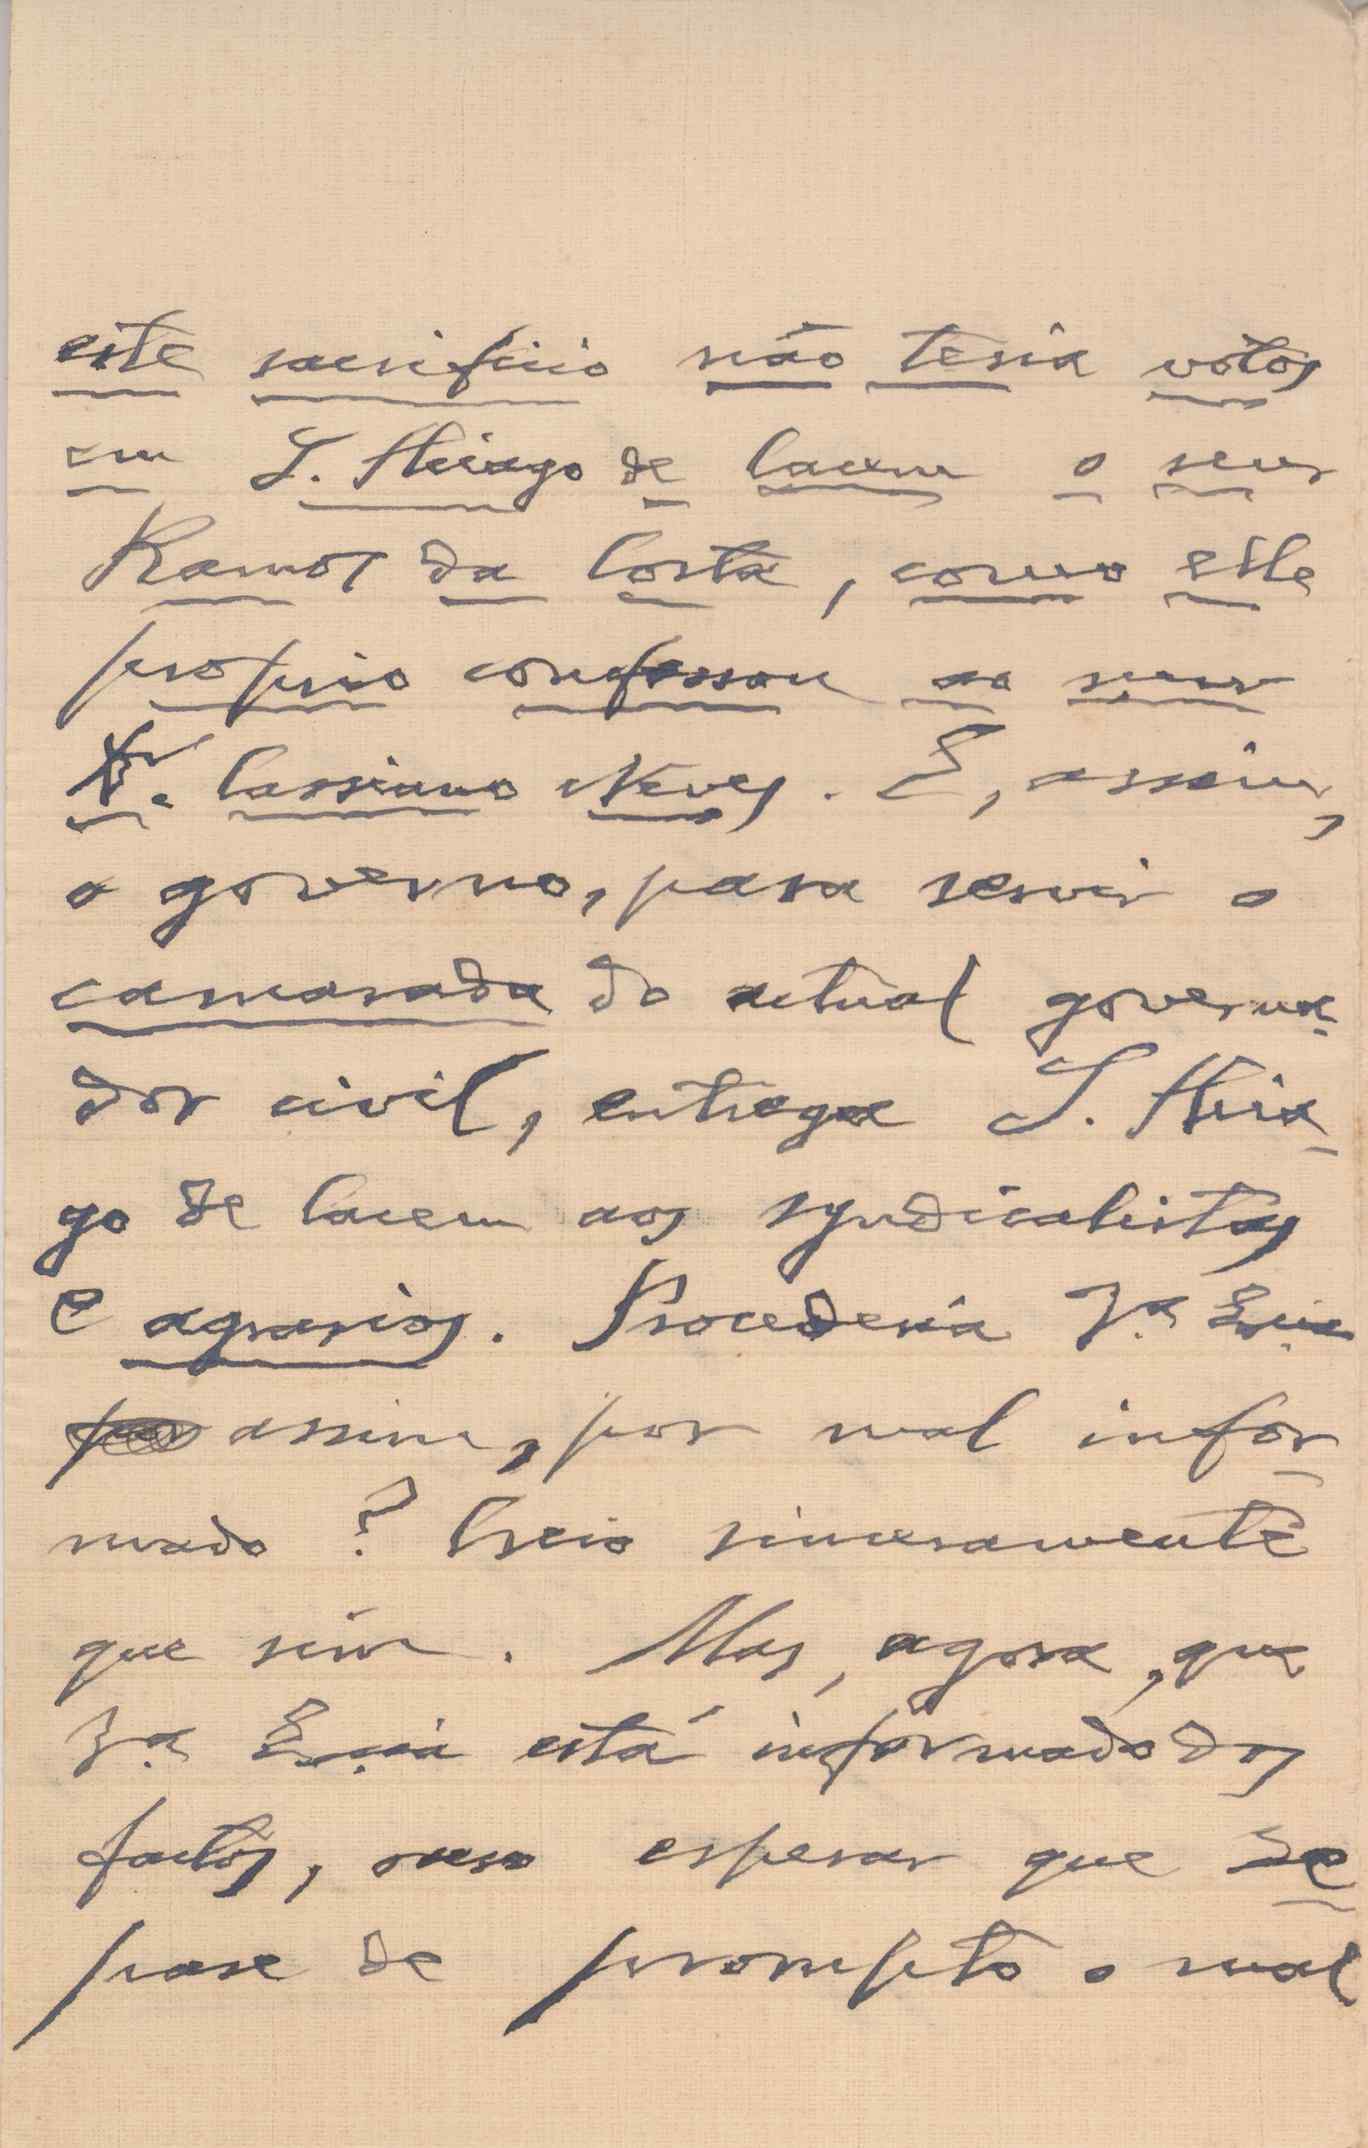 este sacrificio não teria votos
em S. Thiago de Cacem o snr
Ramos da Costa, como elle
proprio confessou ao snr
Dr. Cassiano Neves. E, assim,
o governo, para servir o
camarada do actual governa-
dor civil, entrega S. Thia-
go de Cacem aos syndicalistas
e agrarios. Procederia V.ª Ex.cia
assim, por mal infor-
mado? Creio sinceramente
que sim. Mas, agora, que
V.ª Ex.cia está informado dos
factos, ouso esperar que re-
pare de prompto o mal